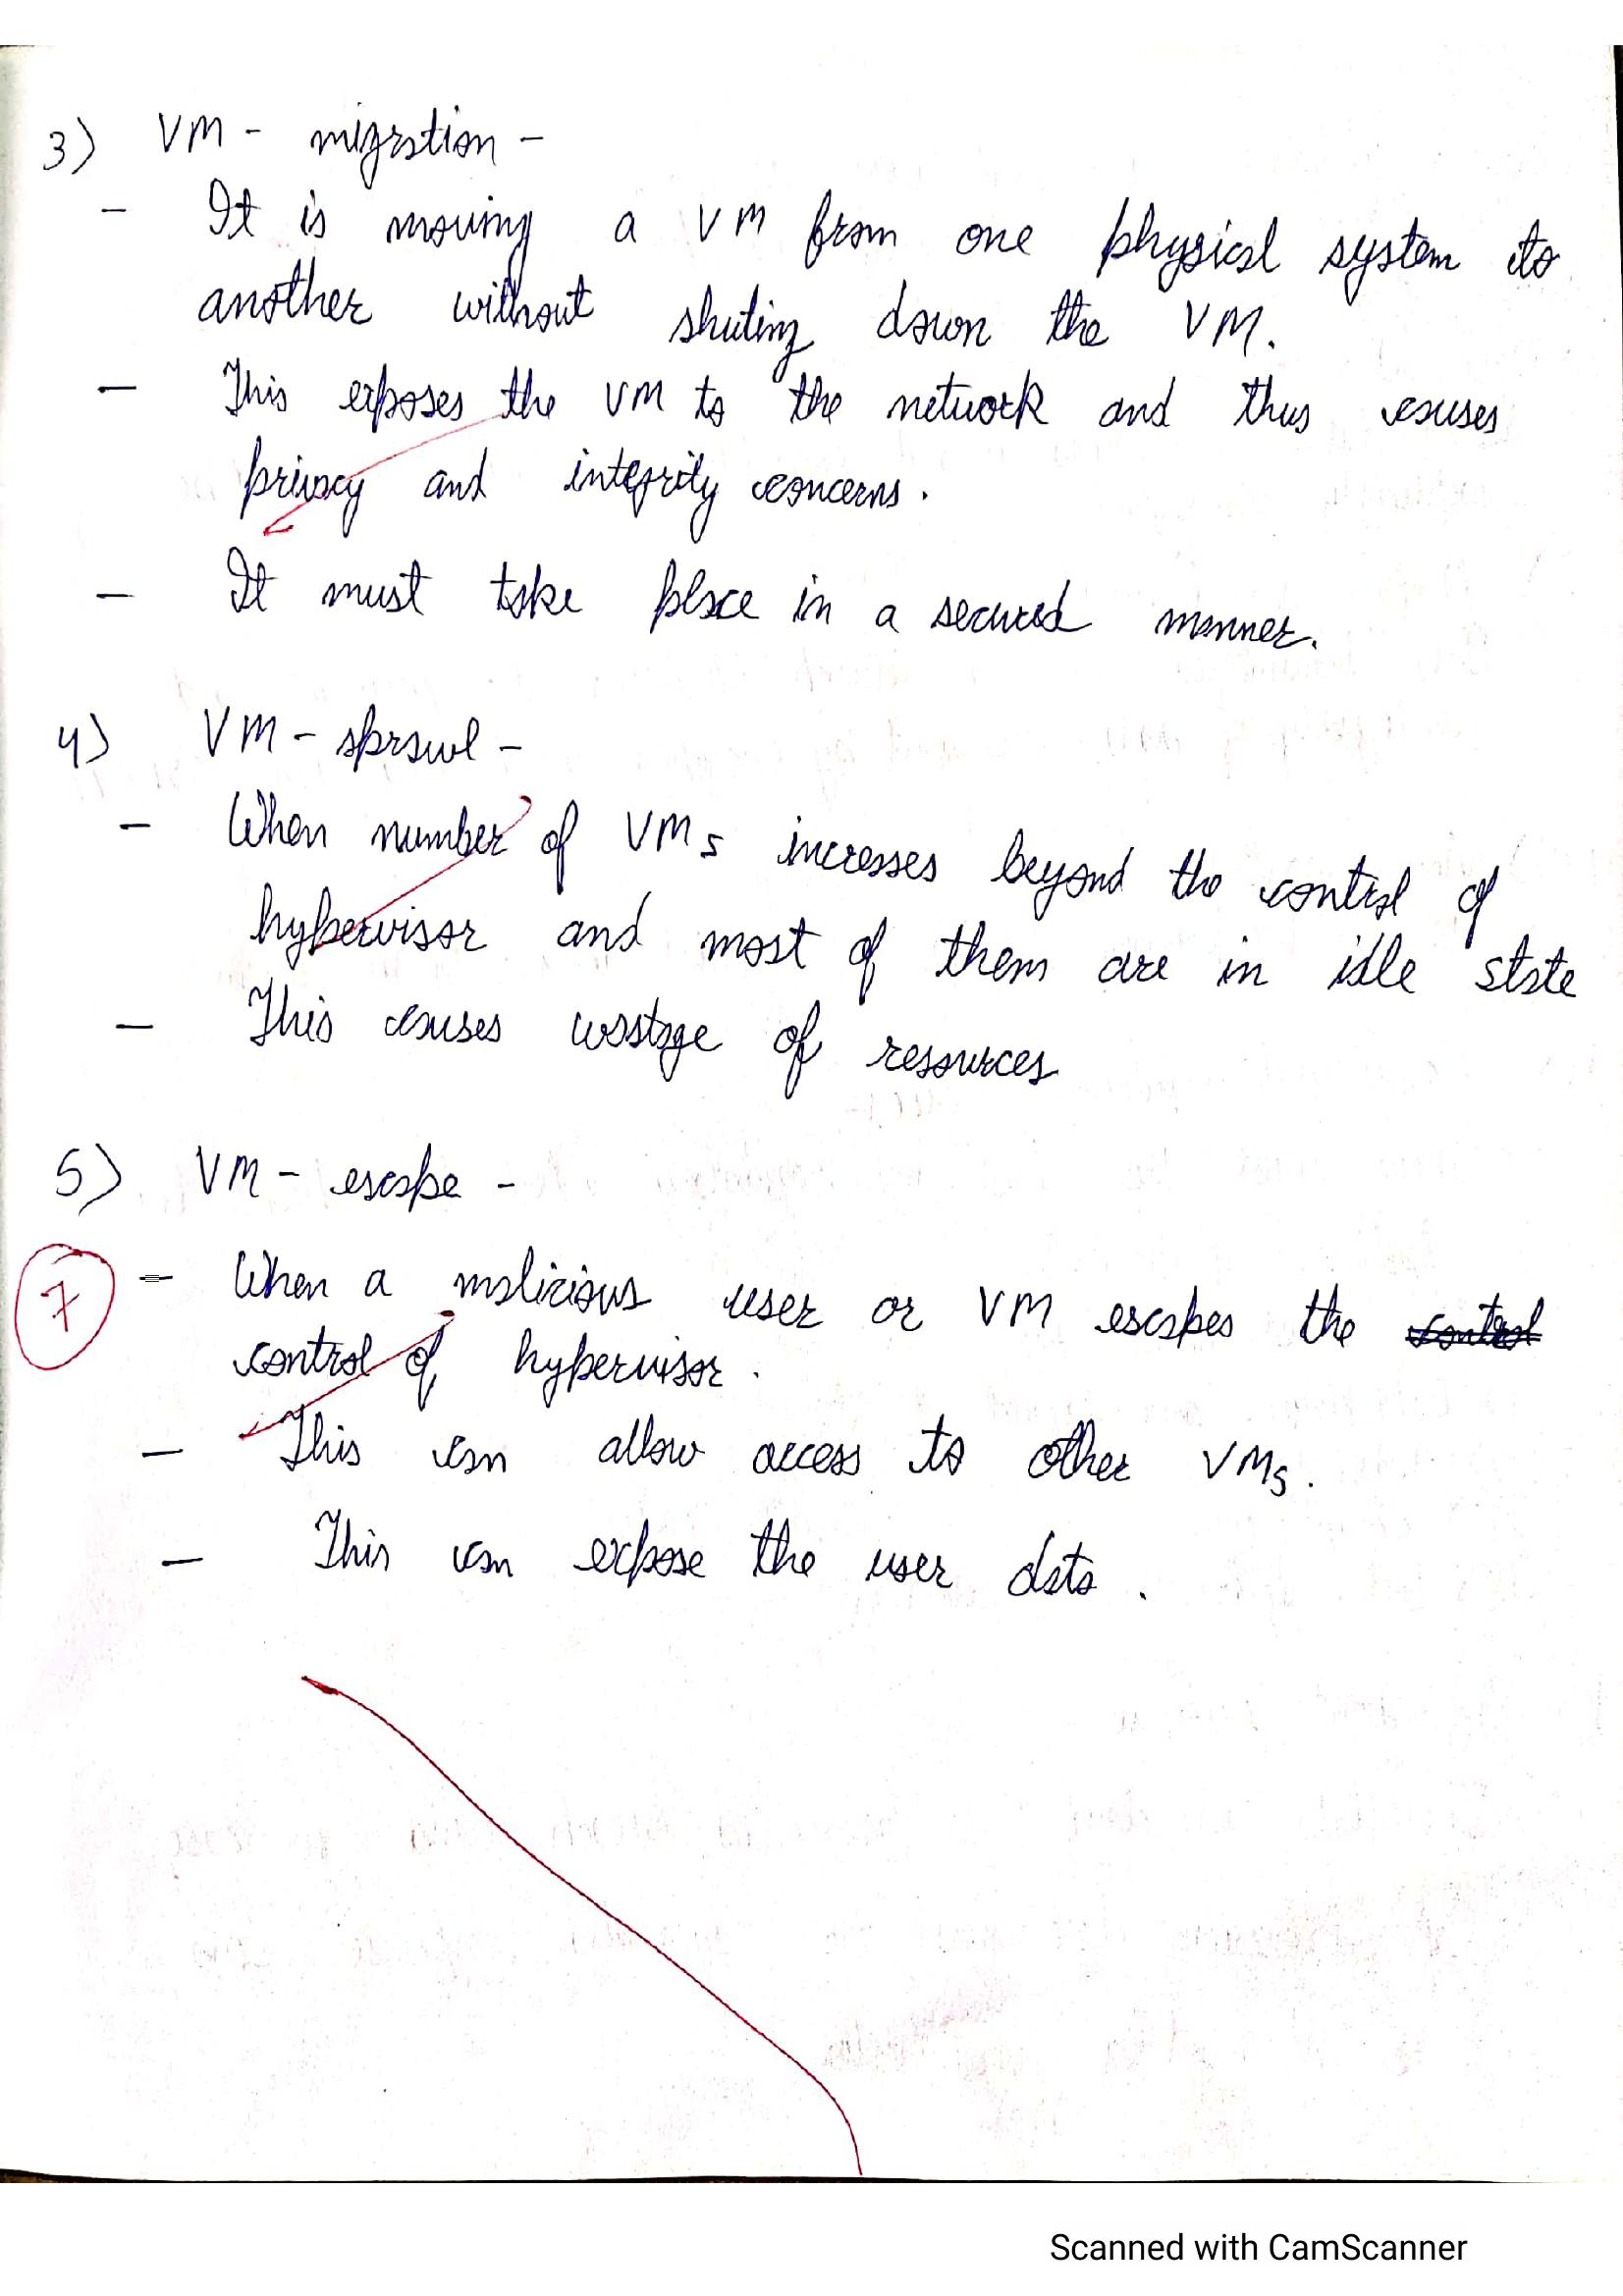 3) VM - migration -
- It is moving a VM from one physical system to
another without shuting down the VM.
- This exposes the VM to the network and thus causes
privacy and integrity concerns.
- It must take place in a secured manner.
4) VM - sprawl -
- When number of VMs increases beyond the control of
hypervisor and most of them are in idle state
- This causes wastage of resources
5) VM - escape -
7
- When a malicious user or VM escapes the control
control of hypervisor.
- This can allow access to other VMs.
- This can expose the user data.
Scanned with CamScanner